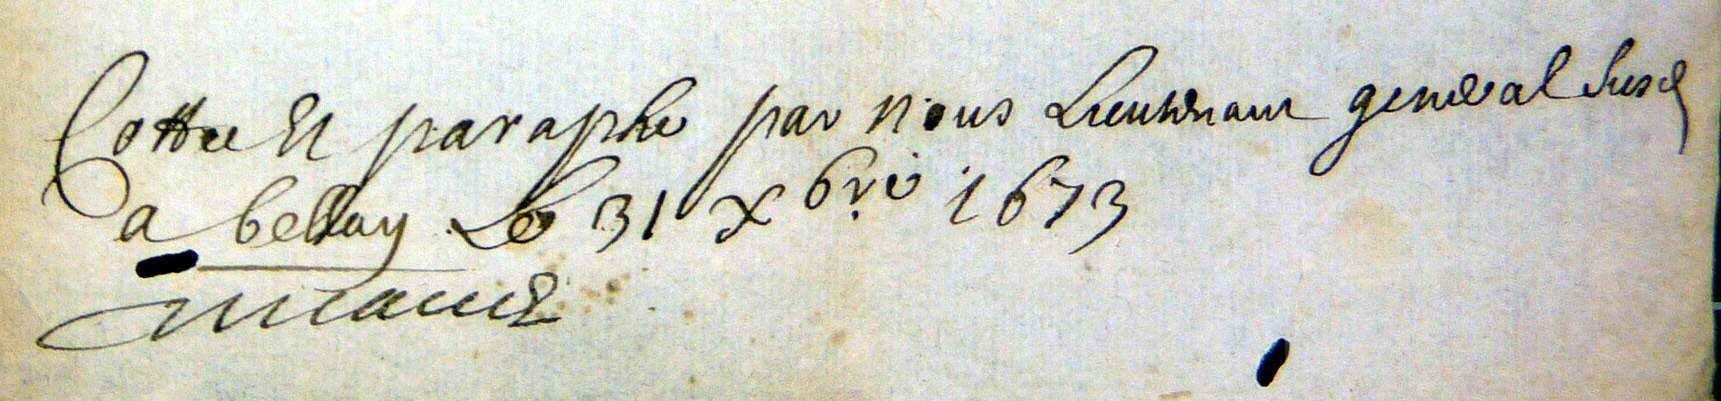 Cottee Et paraphe par Nous Lieutenant general susd
a bellay Le 31 xbre 1673